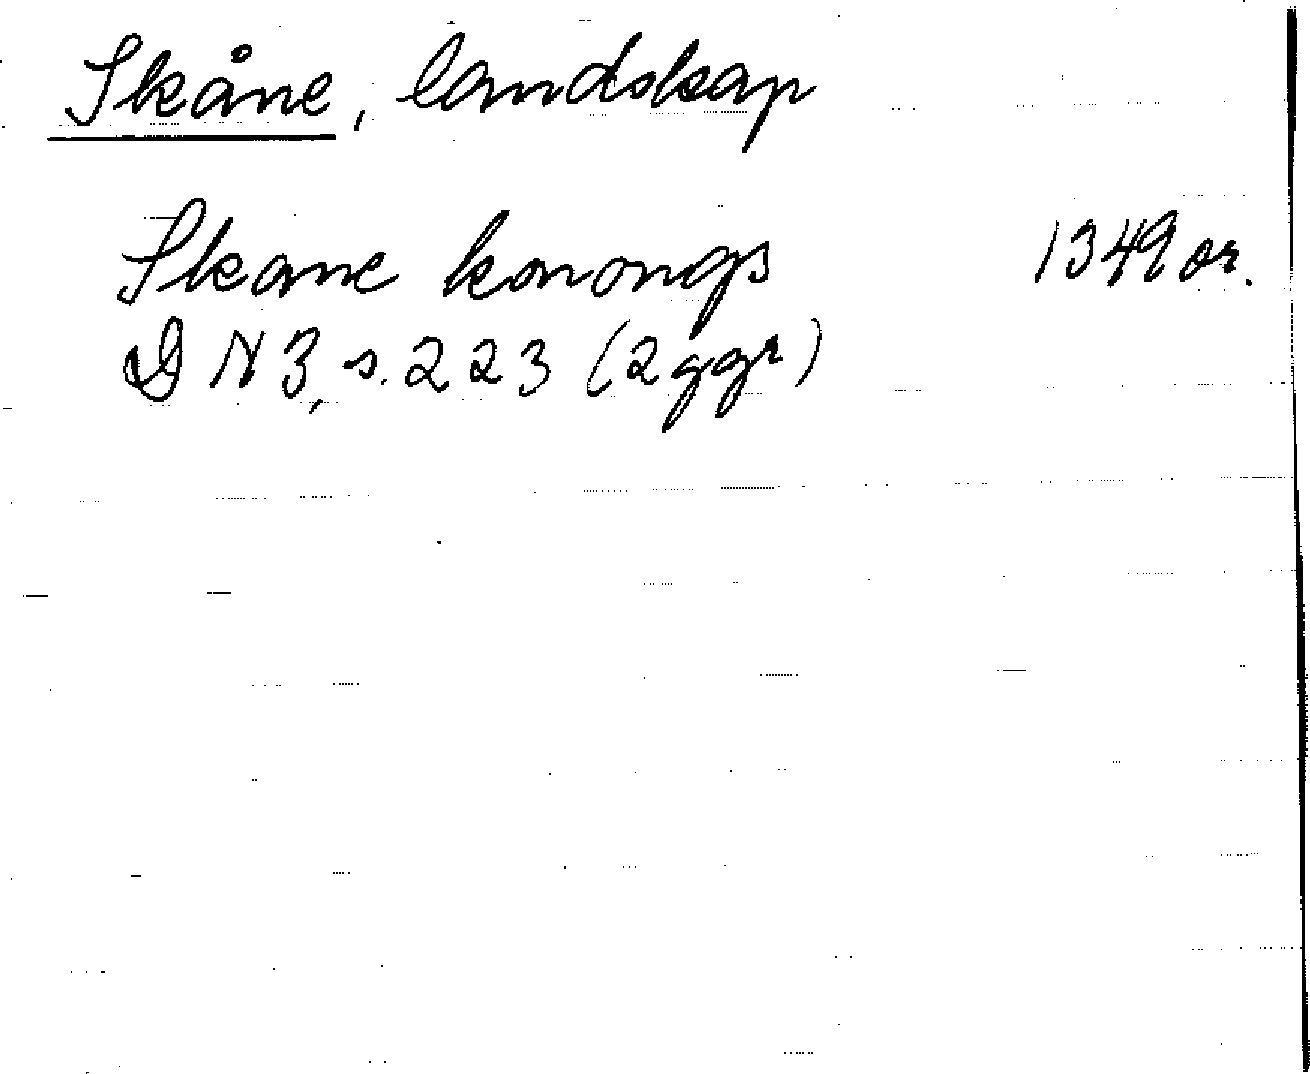 Skåne, landskap
Skane konongs 1349 or.
DN 3, s. 223 (2 ggr)